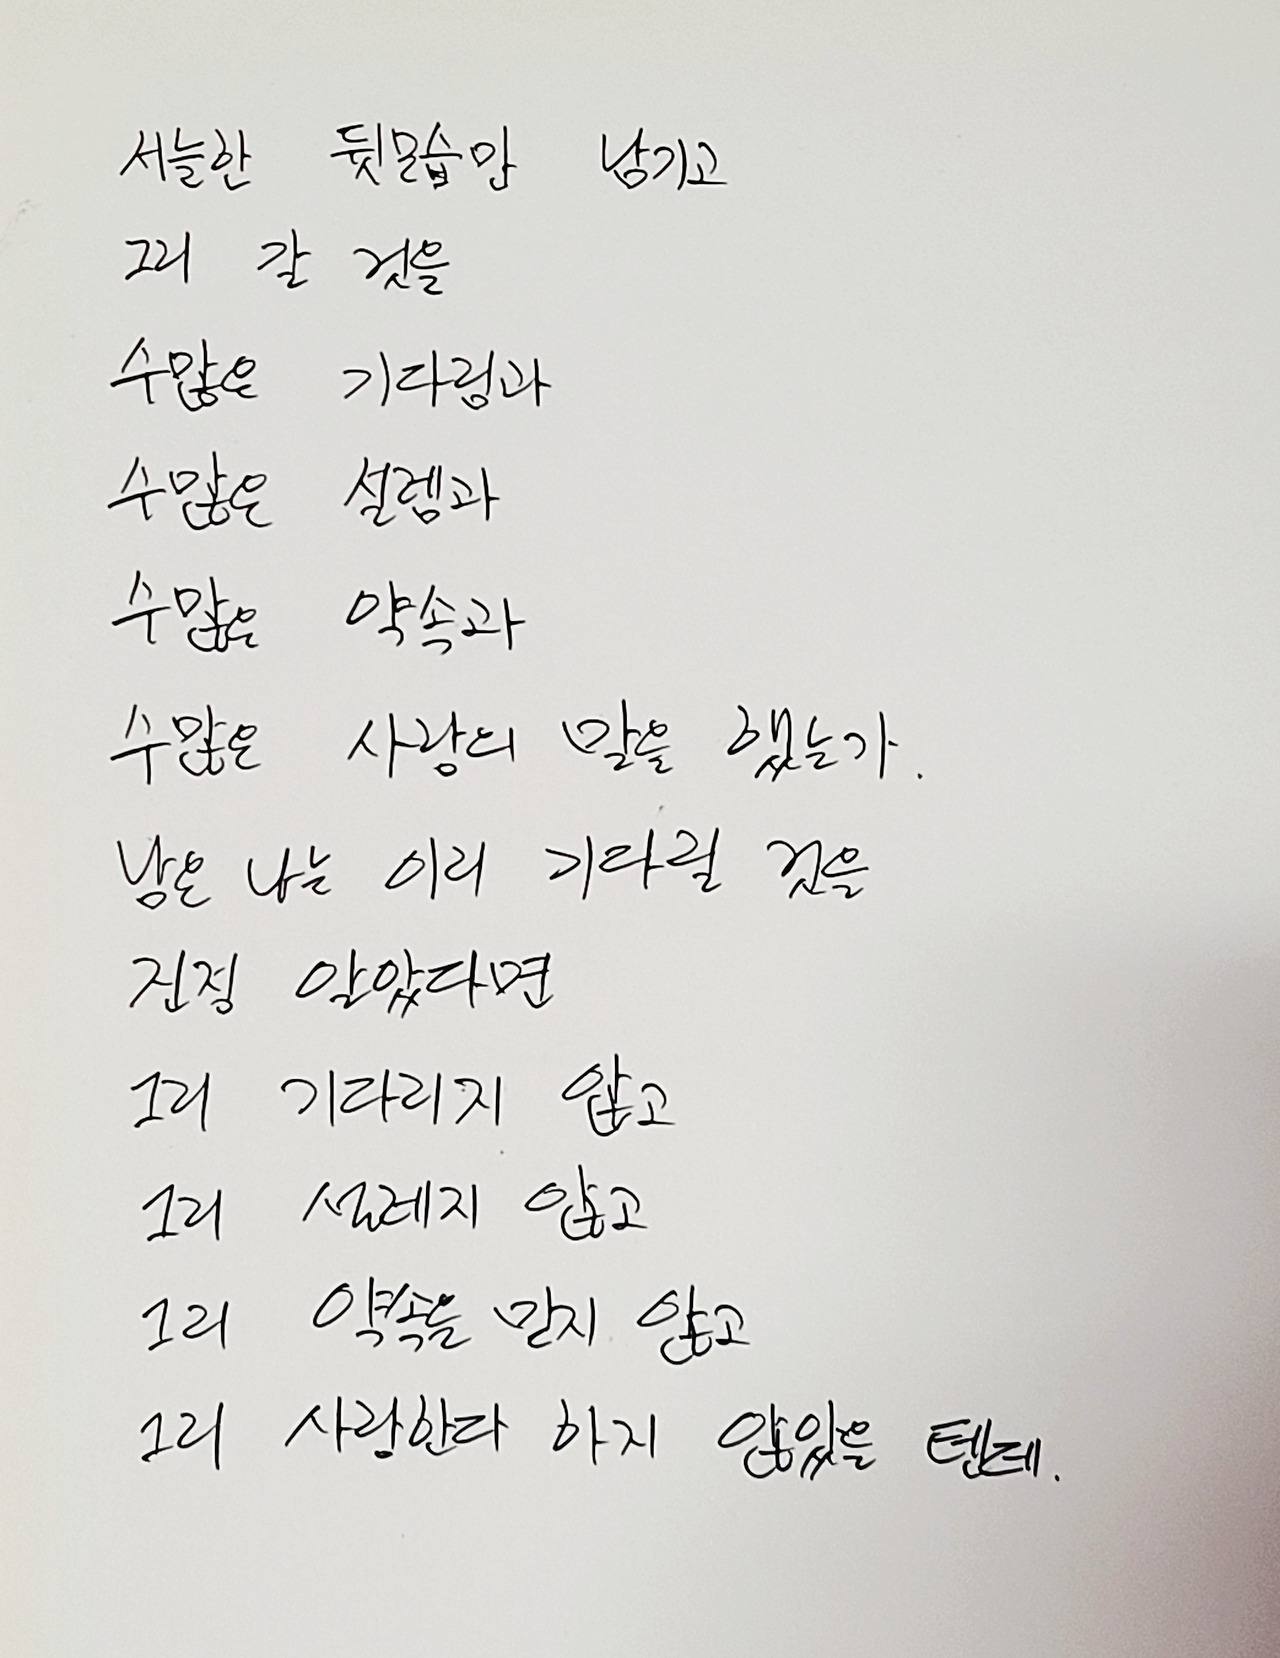 서늘한 뒷모습만 남기고
그리 갈 것을
수많은 기다림과
수많은 설렘과
수많은 약속과
수많은 사랑의 말을 했는가.
남은 나는 이리 기다릴 것을
진정 알았다면
그리 기다리지 않고
그리 설레지 않고
그리 약속을 믿지 않고
그리 사랑한다 하지 않았을 텐데.